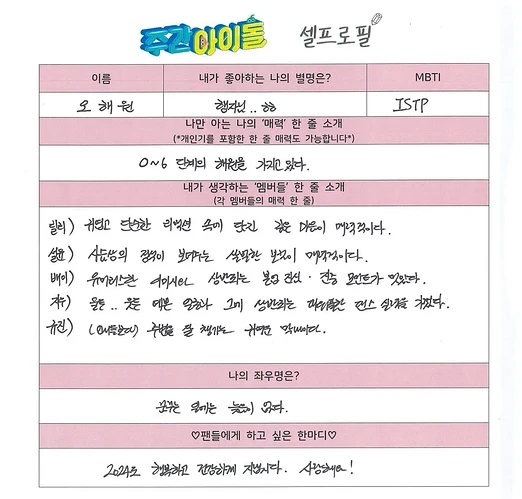 주간아이돌 셀프로필
이름 내가 좋아하는 나의 별명은? MBTI
오해원 ISTP
나만 아는 나의 '매력' 한 줄 소개
(*개인기를 포함한 한 줄 매력도 가능합니다*)
0~6 단계의 해원을 가지고있다.
내가 생각하는 '멤버들' 한 줄 소개
(각 멤버들의 매력 한 줄)
릴리) 귀엽고 단순한 속에 담긴 깊은 마음이 매력적이다.
설윤) 사슴상의 정석이 보여주는 매력적이다.
배이) 유머러스한 여이사 상반되는 포인트가 멋있다.
지우) 예쁜 얼굴과 그에 상반되는 파워풀한 댄스 실력을 가졌다.
규진) 주변을 잘 챙기는 귀여운 막내이다.
나의 좌우명은?
모든 일에는 늦음이 없다.
♡팬들에게 하고 싶은 한마디♡
2024도 행복하고 건강하게 지냅시다. 사랑해요!